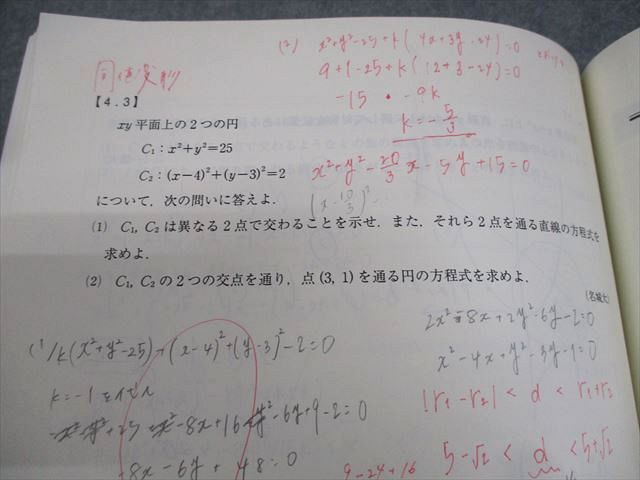 (2) x²+y²-25+k(4x+3y-24)=0
9+1-25+k(12+3-24)=0
-15 - 9k
k=-5/3
x²+y²-20/3x-5y+15=0
(x-10/3)²
同値変形
【4.3】
xy平面上の2つの円
C₁:x²+y²=25
C₂:(x-4)²+(y-3)²=2
について，次の問いに答えよ．
(1) C₁, C₂は異なる2点で交わることを示せ．また，それら2点を通る直線の方程式を
求めよ．
(2) C₁, C₂の2つの交点を通り，点(3, 1)を通る円の方程式を求めよ．
(名城大)
2x²-8x+2y²-6y-2=0
x²-4x+y²-3y-1=0
|r₁-r₂| < d < r₁+r₂
5-√2 < d < 5+√2
(1) k(x²+y²-25)+(x-4)²+(y-3)²-2=0
k=-1を代入
-x²-y²+25+x²-8x+16+y²-6y+9-2=0
-8x-6y+48=0
9-24+16